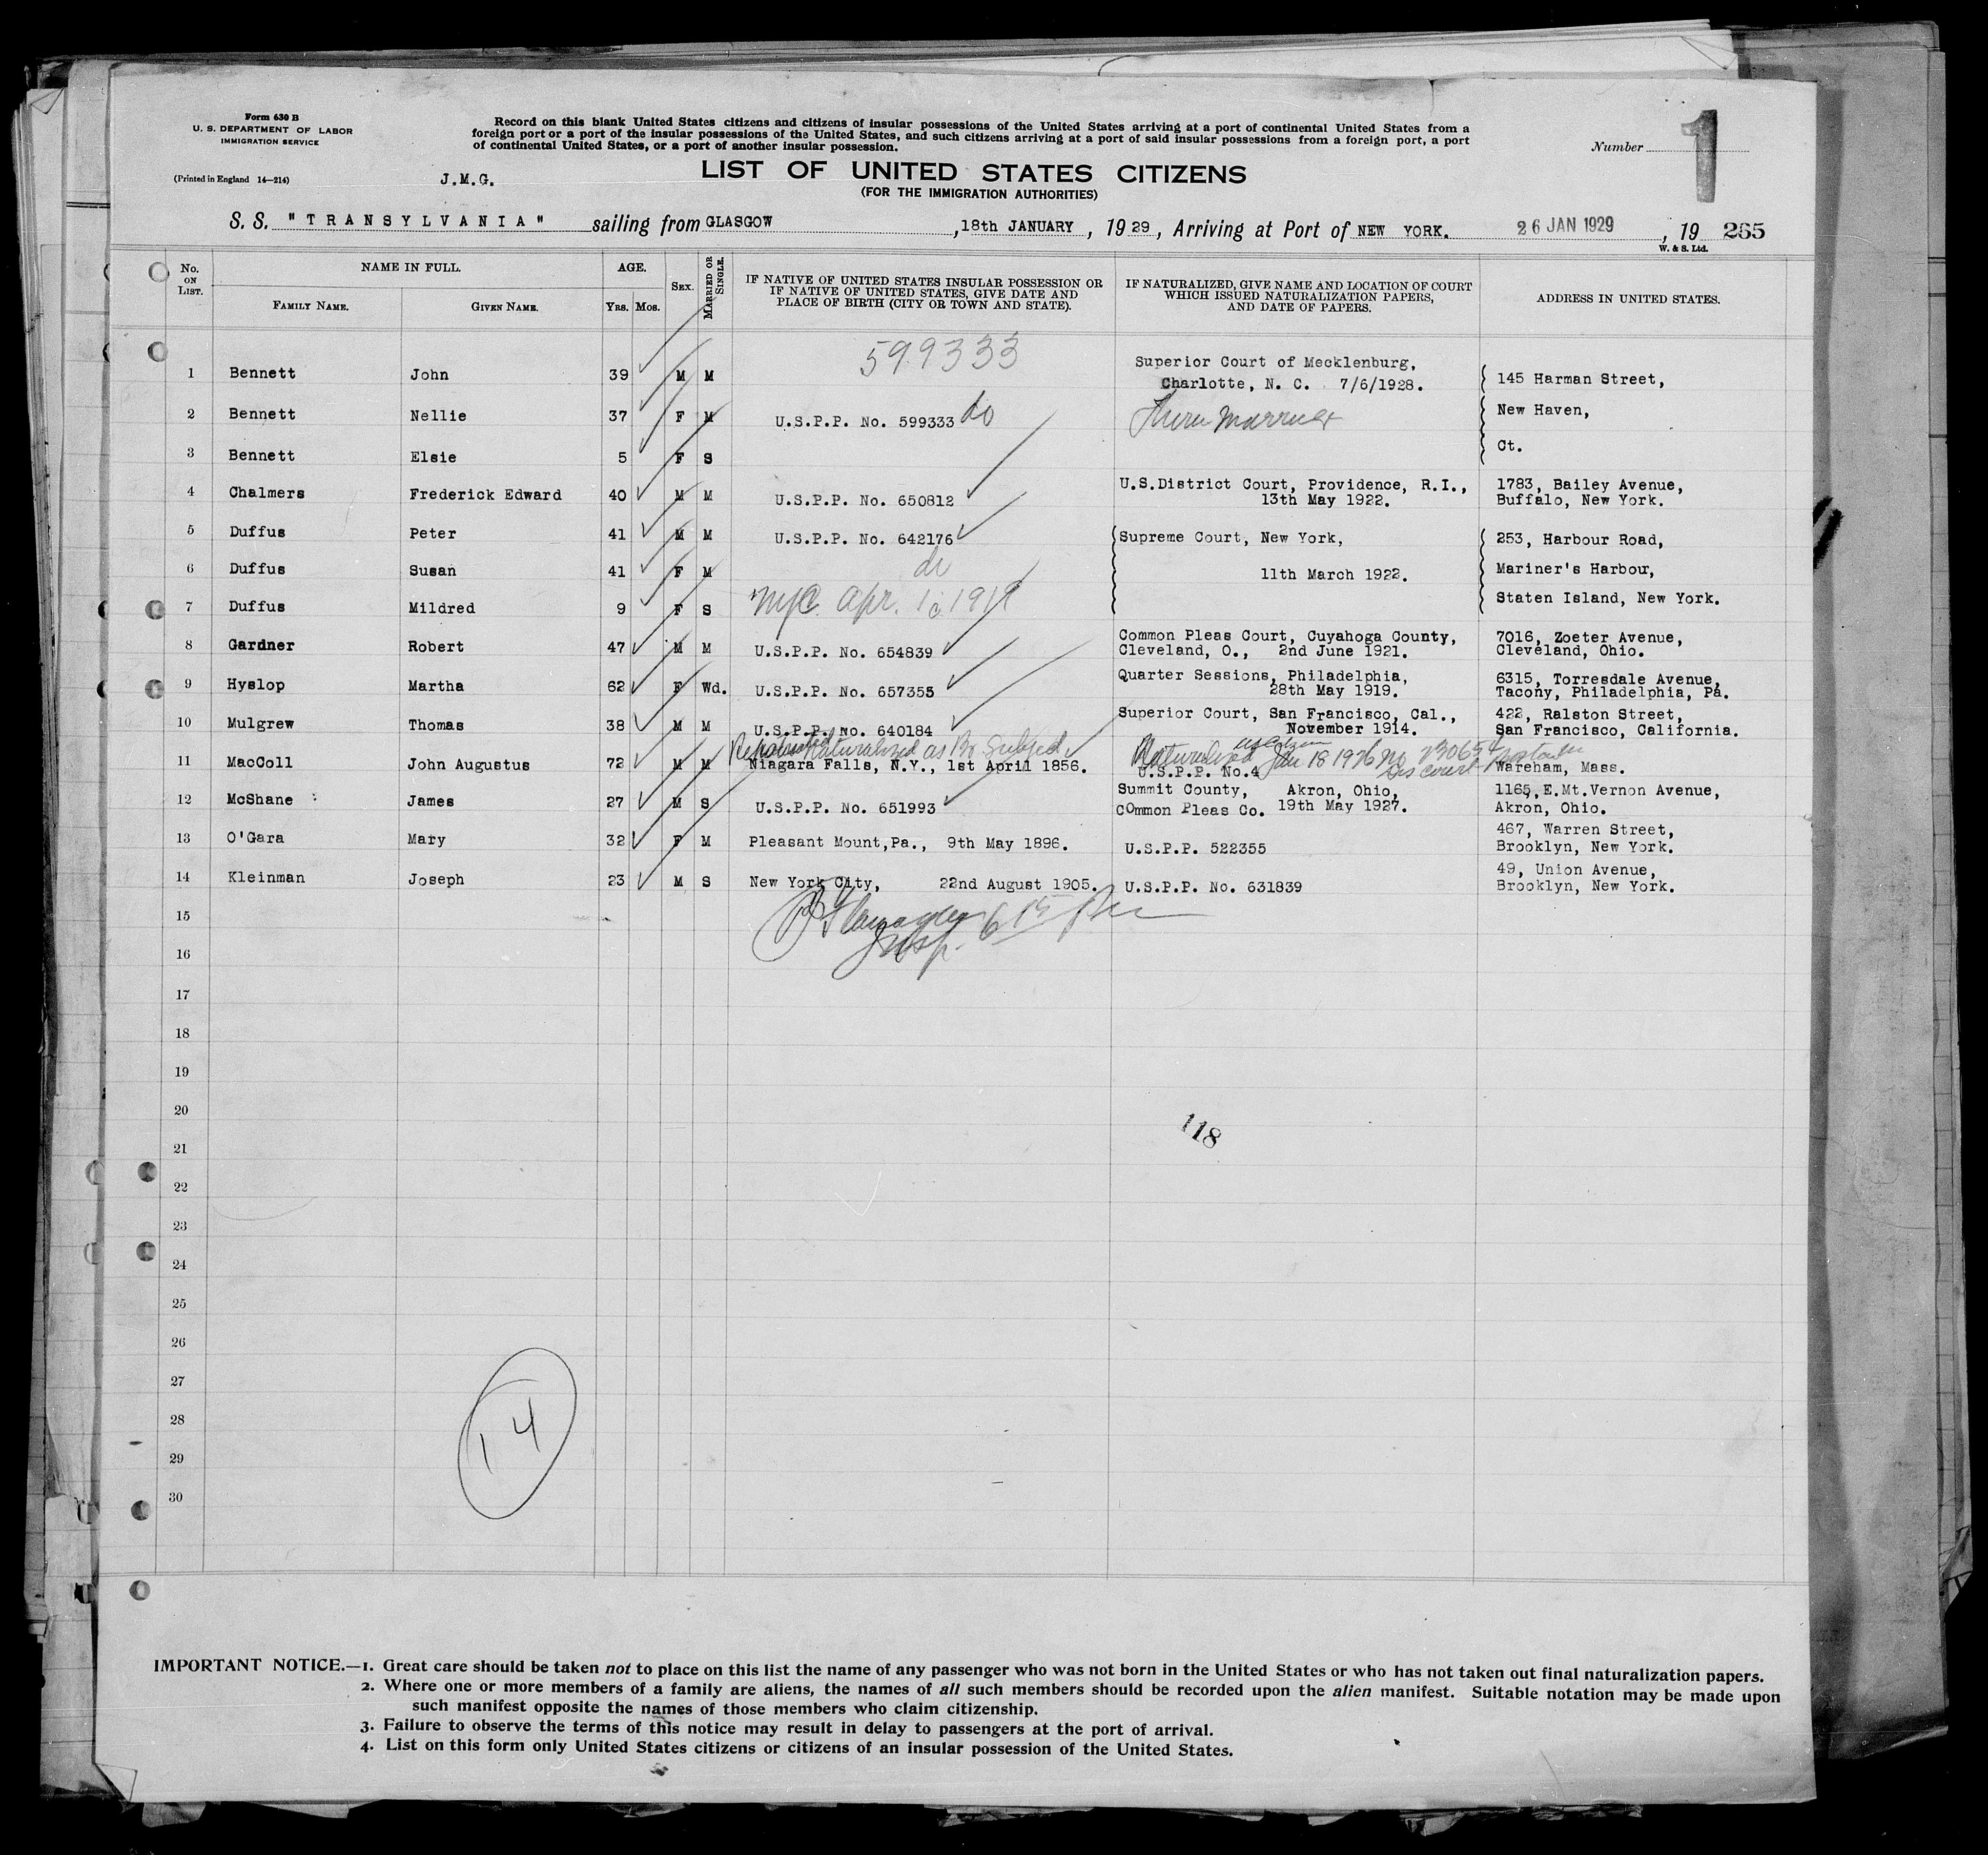 Form 630 B
U. S. DEPARTMENT OF LABOR
IMMIGRATION SERVICE
(Printed in England 14—214)
J.M.G.
Record on this blank United States citizens and citizens of insular possessions of the United States arriving at a port of continental United States from a
foreign port or a port of the insular possessions of the United States, and such citizens arriving at a port of said insular possessions from a foreign port, a port
of continental United States, or a port of another insular possession.
Number 1
LIST OF UNITED STATES CITIZENS
(FOR THE IMMIGRATION AUTHORITIES)
S. S. "TRANSYLVANIA" sailing from GLASGOW, 18th JANUARY, 1929, Arriving at Port of NEW YORK. 26 JAN 1929, 19 265
W. & S. Ltd.
No. ON LIST.
NAME IN FULL.
FAMILY NAME.
GIVEN NAME.
AGE.
Yrs. Mos.
SEX.
MARRIED OR SINGLE.
IF NATIVE OF UNITED STATES INSULAR POSSESSION OR
IF NATIVE OF UNITED STATES, GIVE DATE AND
PLACE OF BIRTH (CITY OR TOWN AND STATE).
IF NATURALIZED, GIVE NAME AND LOCATION OF COURT
WHICH ISSUED NATURALIZATION PAPERS,
AND DATE OF PAPERS.
ADDRESS IN UNITED STATES.
599333
Superior Court of Mecklenburg,
1 Bennett John 39 M M Charlotte, N. C. 7/6/1928. 145 Harman Street,
2 Bennett Nellie 37 F M U.S.P.P. No. 599333 do Thru marriage New Haven,
3 Bennett Elsie 5 F S Ct.
4 Chalmers Frederick Edward 40 M M U.S.P.P. No. 650812 U.S.District Court, Providence, R.I., 1783, Bailey Avenue,
13th May 1922. Buffalo, New York.
5 Duffus Peter 41 M M U.S.P.P. No. 642176 Supreme Court, New York, 253, Harbour Road,
6 Duffus Susan 41 F M do 11th March 1922. Mariner's Harbour,
7 Duffus Mildred 9 F S NYC. Apr. 1919 Staten Island, New York.
8 Gardner Robert 47 M M U.S.P.P. No. 654839 Common Pleas Court, Cuyahoga County, 7016, Zoeter Avenue,
Cleveland, O., 2nd June 1921. Cleveland, Ohio.
9 Hyslop Martha 62 F Wd. U.S.P.P. No. 657355 Quarter Sessions, Philadelphia, 6315, Torresdale Avenue,
28th May 1919. Tacony, Philadelphia, Pa.
10 Mulgrew Thomas 38 M M U.S.P.P. no. 640184 Superior Court, San Francisco, Cal., 422, Ralston Street,
November 1914. San Francisco, California.
Naturalized as Br Subject Naturalized US Citizen Jan 18 1926 No
Dis Court
11 MacColl John Augustus 72 M M Niagara Falls, N.Y., 1st April 1856. U.S.P.P. No.4 Wareham, Mass.
12 McShane James 27 M S U.S.P.P. No. 651993 Summit County, Akron, Ohio, 1165, E.Mt.Vernon Avenue,
COmmon Pleas Co. 19th May 1927. Akron, Ohio.
13 O'Gara Mary 32 F M Pleasant Mount,Pa., 9th May 1896. U.S.P.P. 522355 467, Warren Street,
Brooklyn, New York.
14 Kleinman Joseph 23 M S New York City, 22nd August 1905. U.S.P.P. No. 631839 49, Union Avenue,
Brooklyn, New York.
15
Insp.
16
17
18
19
20
118
21
22
23
24
25
26
27
28
14
29
30
IMPORTANT NOTICE.—1. Great care should be taken not to place on this list the name of any passenger who was not born in the United States or who has not taken out final naturalization papers.
2. Where one or more members of a family are aliens, the names of all such members should be recorded upon the alien manifest. Suitable notation may be made upon
such manifest opposite the names of those members who claim citizenship.
3. Failure to observe the terms of this notice may result in delay to passengers at the port of arrival.
4. List on this form only United States citizens or citizens of an insular possession of the United States.